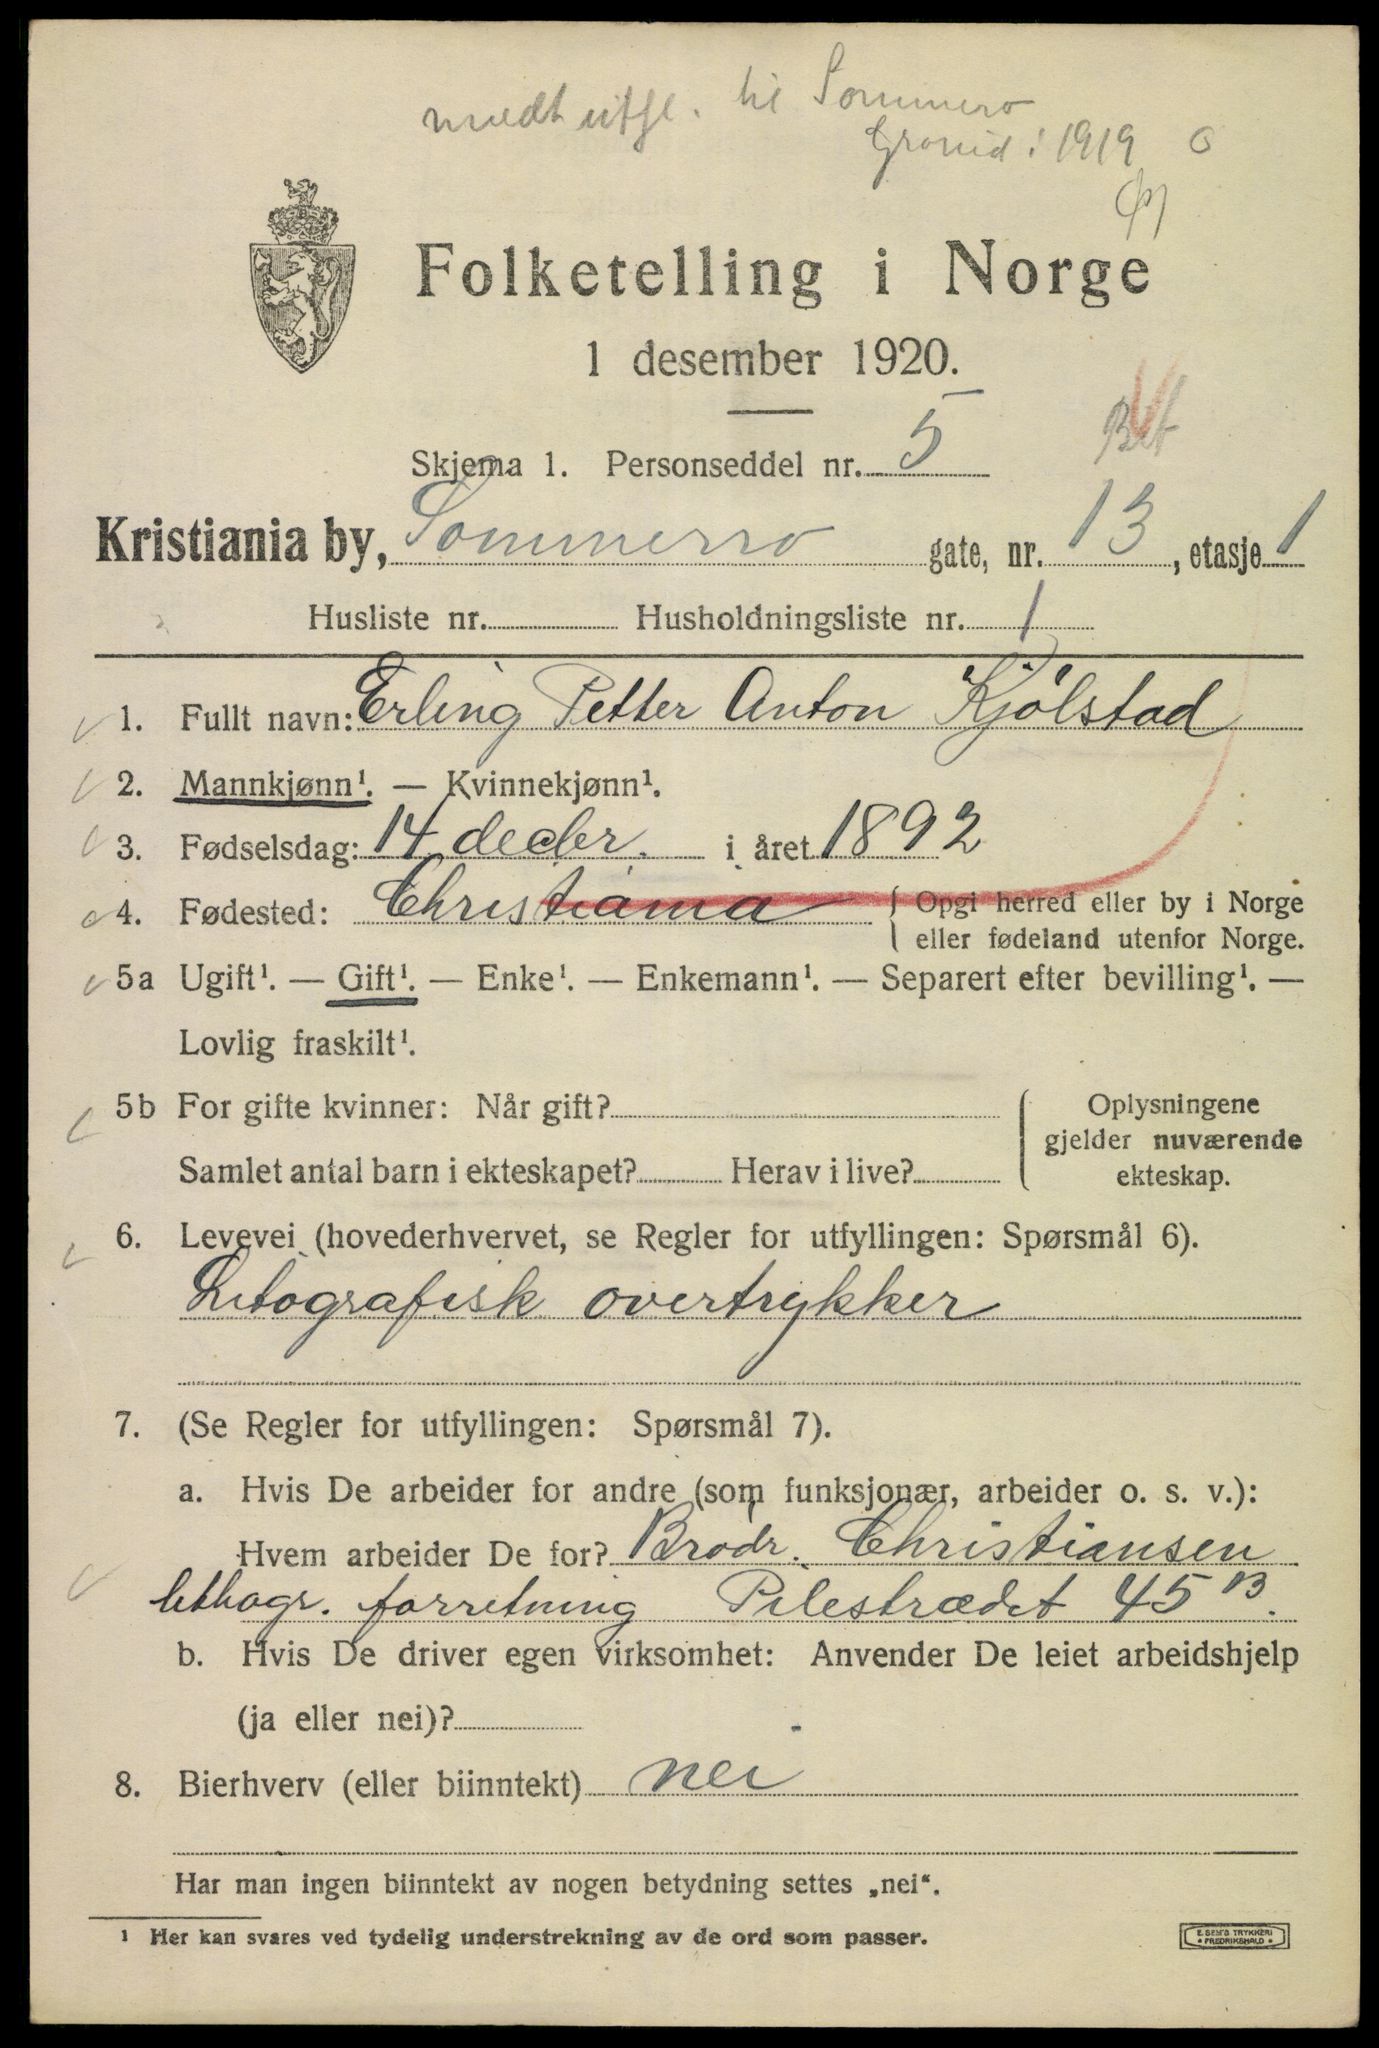 til Sommerro
1919
Folketelling i Norge
1 desember 1920.
Skjema 1. Personseddel nr. 5
Kristiania by, Sommerro gate, nr. 13, etasje 1
Husliste nr. Husholdningsliste nr. 1
1. Fullt navn: Erling Petter Anton Kjølstad
2. Mannkjønn¹. — Kvinnekjønn¹.
3. Fødselsdag: 14 decbr. i året 1892
4. Fødested: Christiania { Opgi herred eller by i Norge
eller fødeland utenfor Norge.
5a Ugift¹. — Gift¹. — Enke¹. — Enkemann¹. — Separert efter bevilling¹. —
Lovlig fraskilt¹.
5b For gifte kvinner: Når gift? { Oplysningene
gjelder nuværende
Samlet antal barn i ekteskapet? Herav i live? ekteskap.
6. Levevei (hovederhvervet, se Regler for utfyllingen: Spørsmål 6).
Litografisk overtrykker
7. (Se Regler for utfyllingen: Spørsmål 7).
a. Hvis De arbeider for andre (som funksjonær, arbeider o. s. v.):
Hvem arbeider De for? Brødr. Christiansen
lithogr. forretning Pilestrædet 45 B.
b. Hvis De driver egen virksomhet: Anvender De leiet arbeidshjelp
(ja eller nei)?
8. Bierhverv (eller biinntekt) nei
Har man ingen biinntekt av nogen betydning settes „nei“.
¹ Her kan svares ved tydelig understrekning av de ord som passer.
E. SEM'S TRYKKERI
FREDRIKSHALD